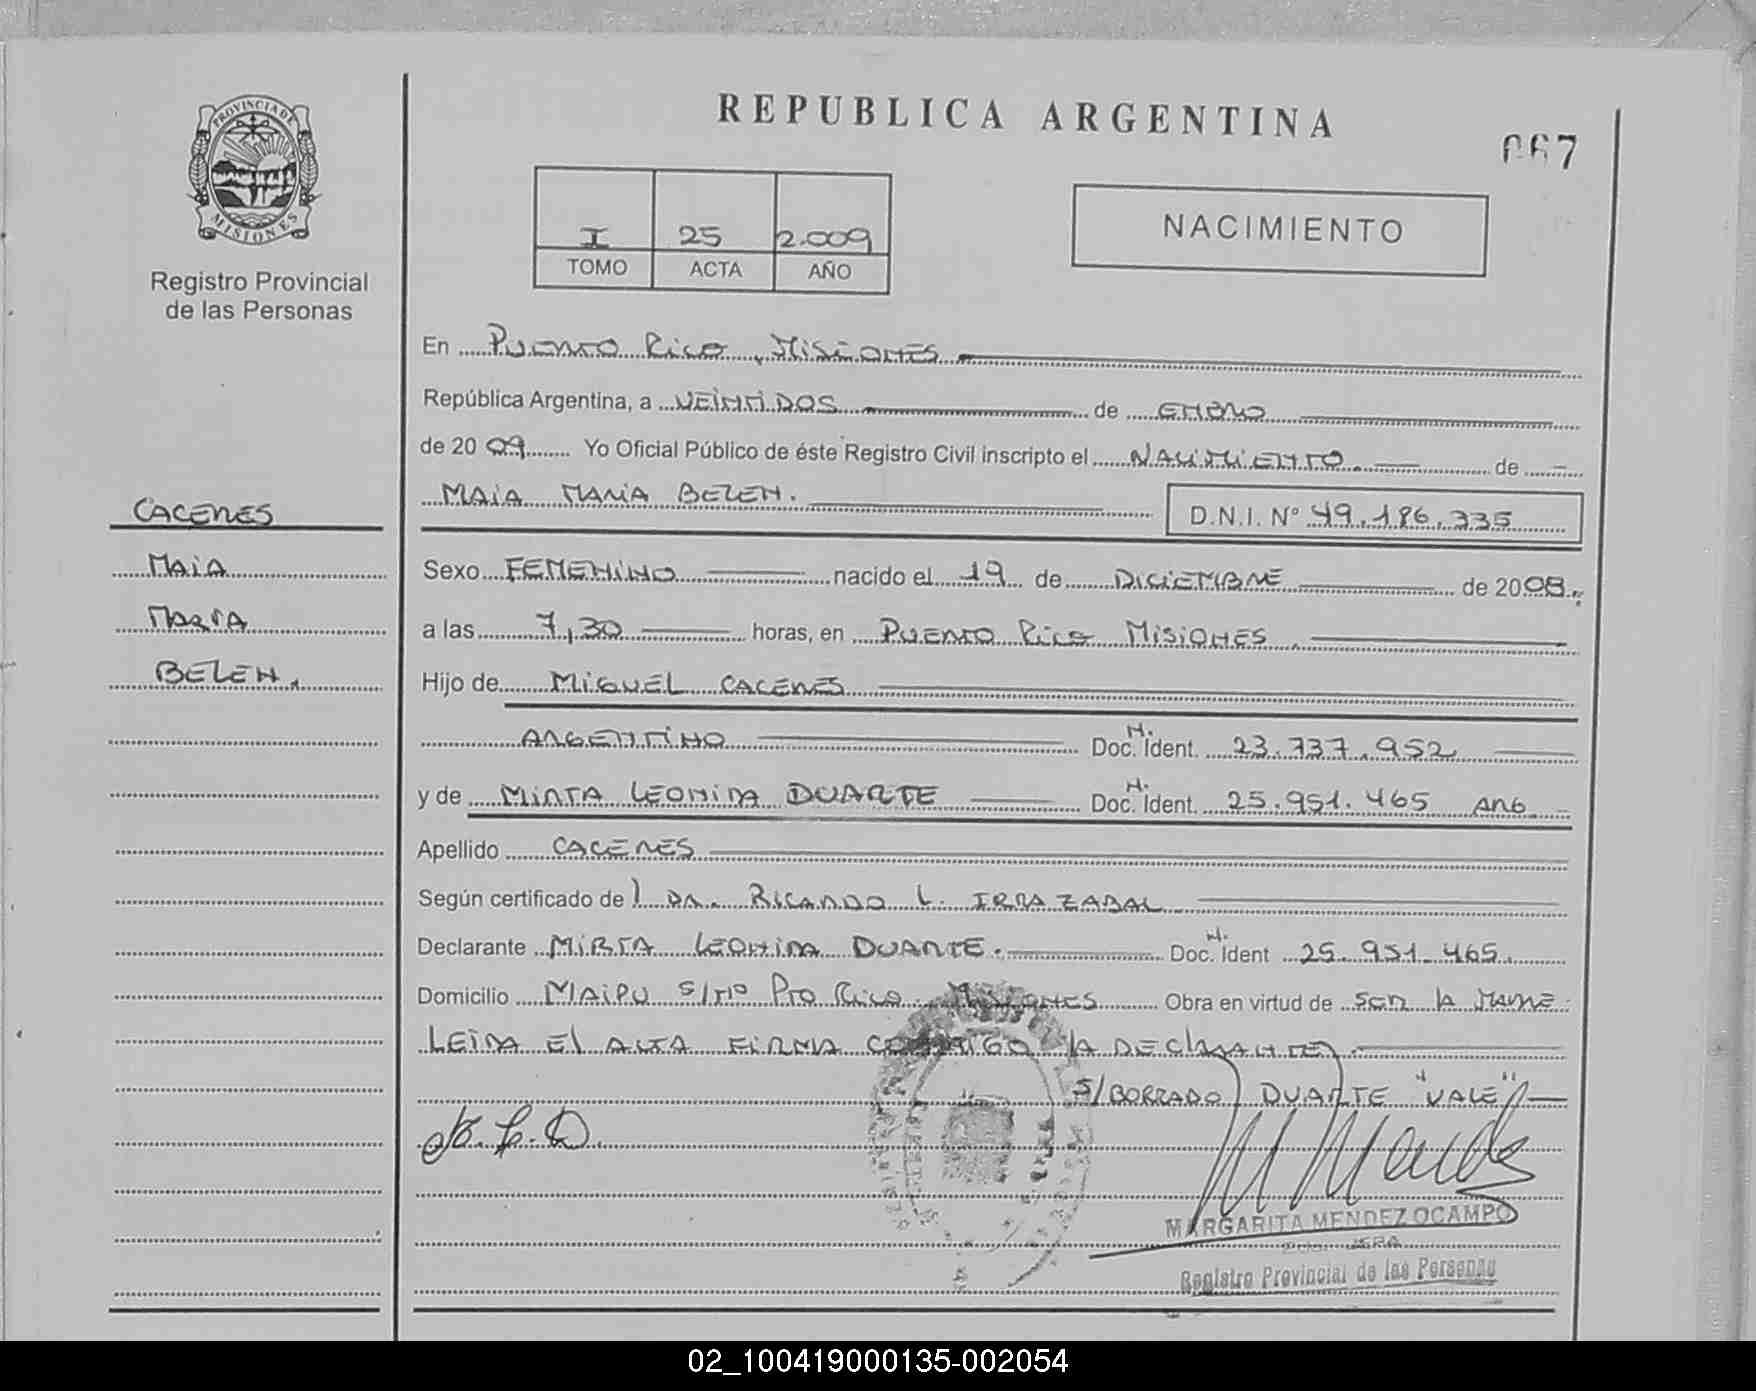 PROVINCIA DE
MISIONES
Registro Provincial
de las Personas
REPUBLICA ARGENTINA
067
NACIMIENTO
I 25 2.009
TOMO ACTA AÑO
En Puerto Rico, Misiones
República Argentina, a VEINTIDOS de ENERO
de 2009 Yo Oficial Público de éste Registro Civil inscripto el NACIMIENTO de
MAIA MARIA BELEN. D.N.I. N° 49.186.335
CACERES
MAIA
MARIA
BELEN.
Sexo FEMENINO nacido el 19 de DICIEMBRE de 2008.
a las 7,30 horas, en PUERTO RICO MISIONES
Hijo de MIGUEL CACERES
ARGENTINO N. Doc. Ident. 23.737.952
y de MIRTA LEONIDA DUARTE N. Doc. Ident. 25.951.465 ARG
Apellido CACERES
Según certificado de l DR. RICARDO L. IRRAZABAL
Declarante MIRTA LEONIDA DUARTE. N. Doc. Ident 25.951.465.
Domicilio MAIPU S/Nº Pto Rico. MISIONES Obra en virtud de SER la MADRE
LEIDA El ACTA FIRMA CONMIGO la DEClARANTE.
S/BORRADO DUARTE "VALE"
M. L. D.
MARGARITA MENDEZ OCAMPO
Registro Provincial de las Personas
02_100419000135-002054